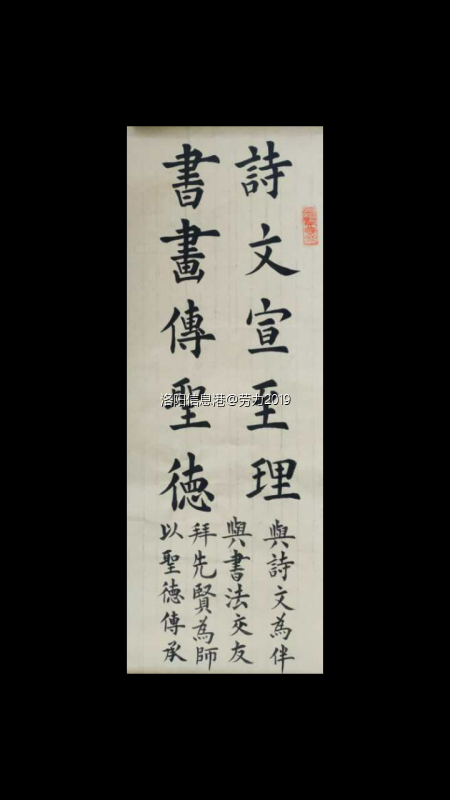 詩文宣至理
書畫傳聖德
與詩文為伴
與書法交友
拜先賢為師
以聖德傳承
洛阳信息港@劳力2019